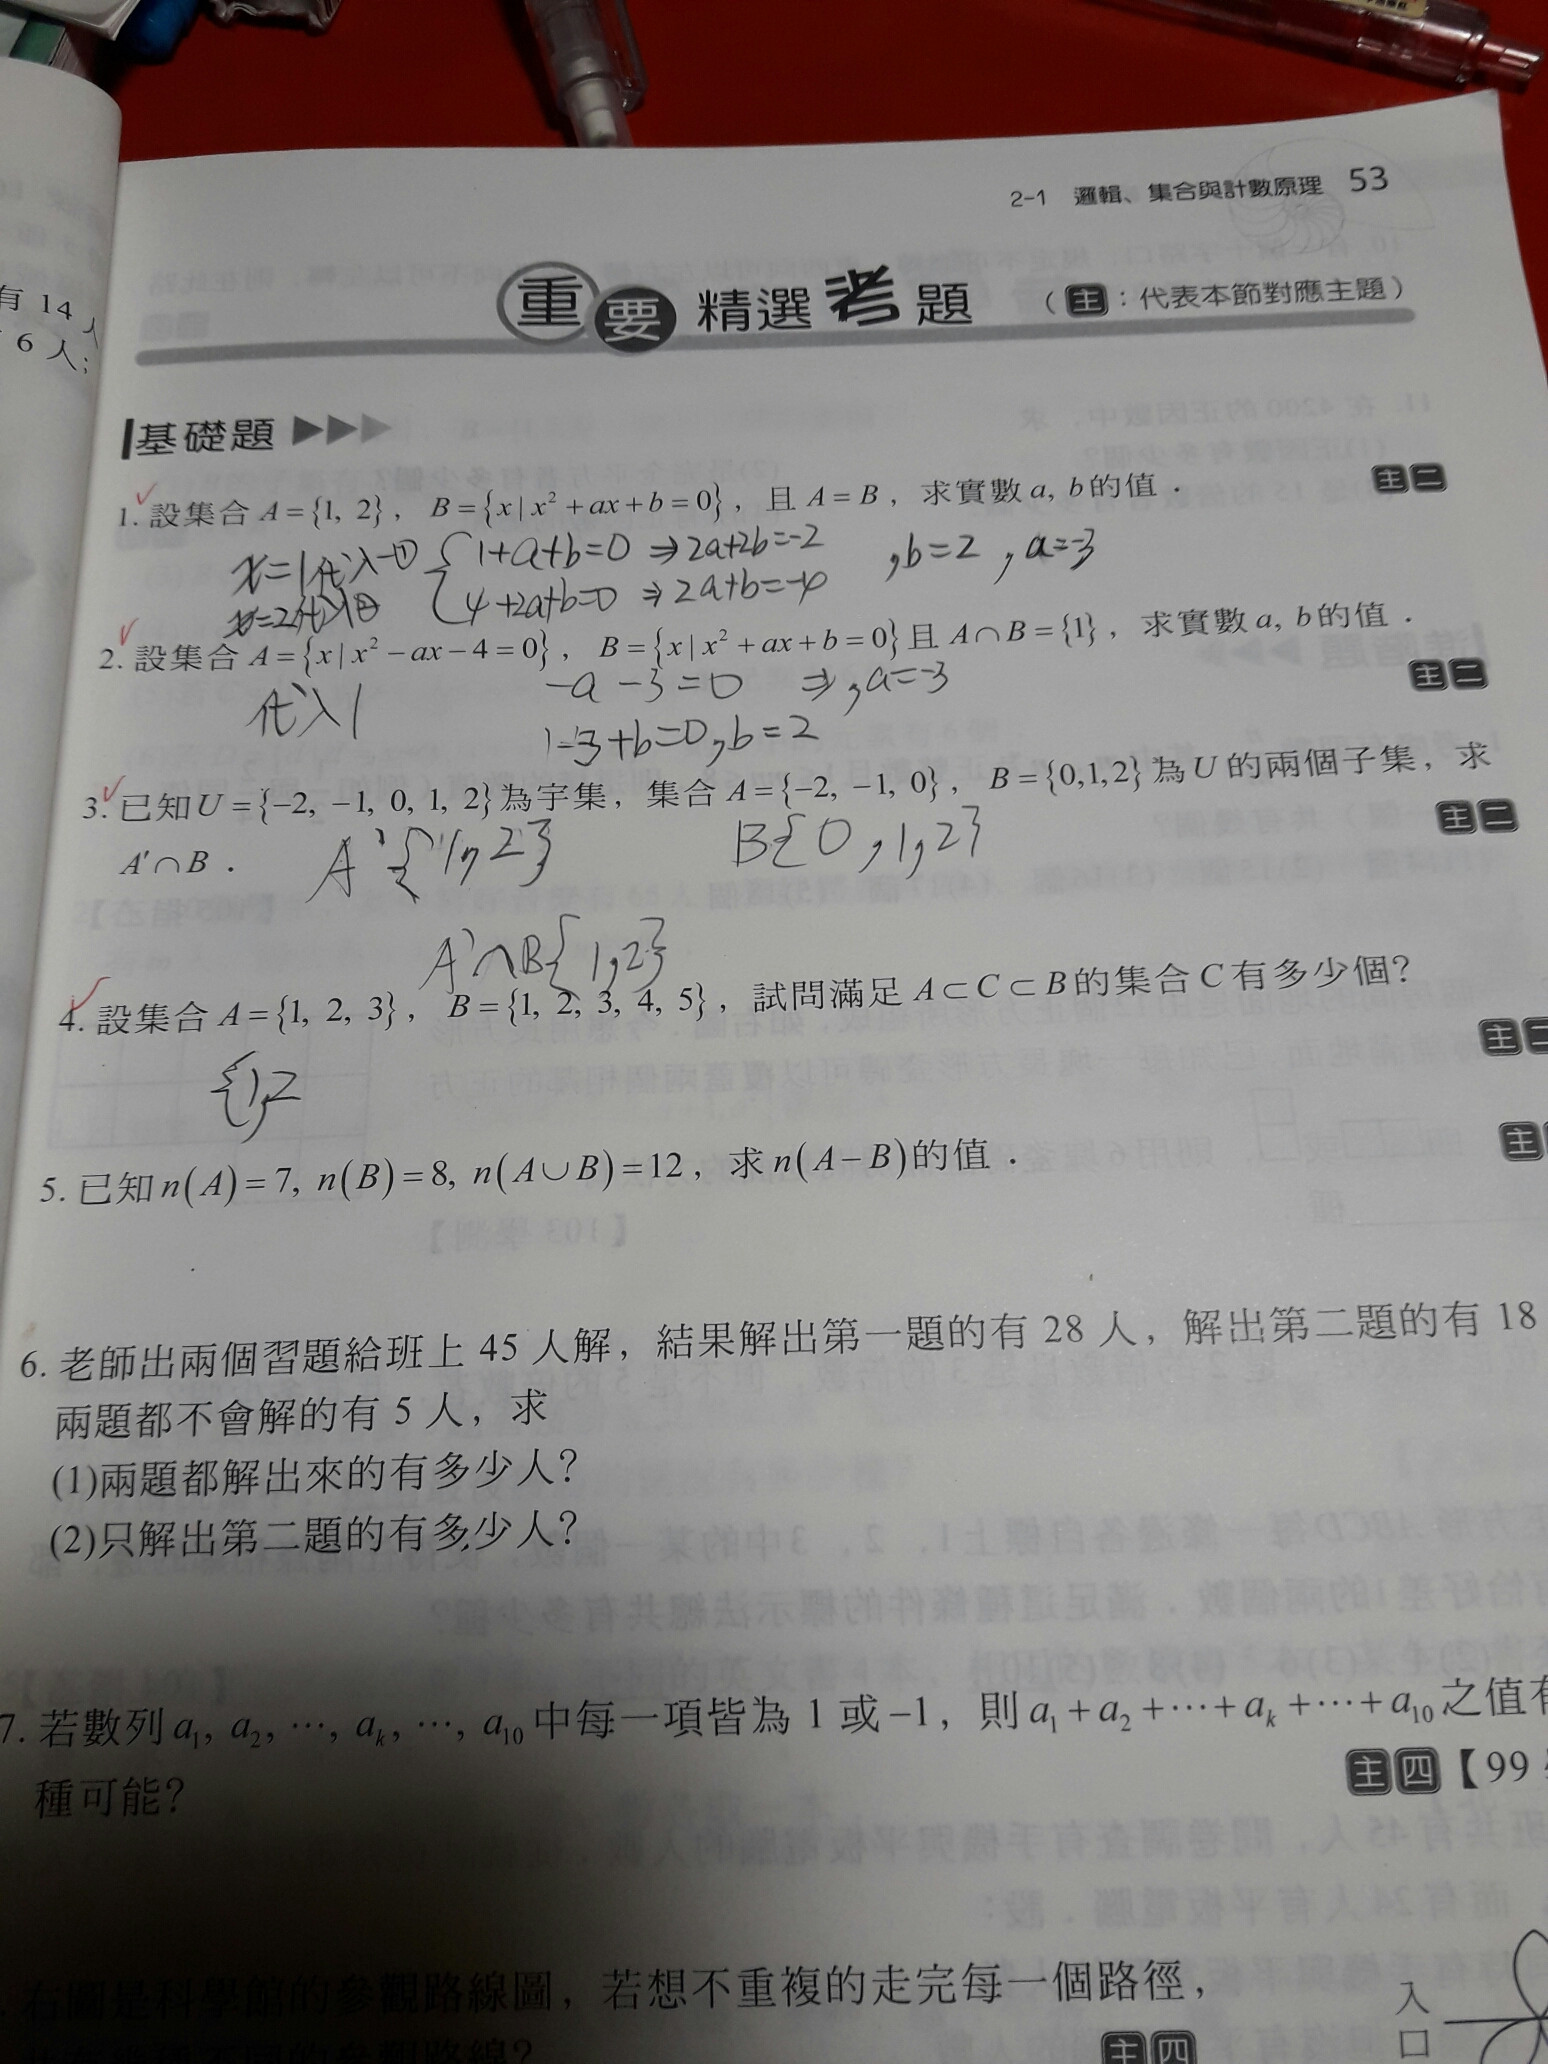 有 14 人
6 人;
2-1 邏輯、集合與計數原理 53
重要精選考題 (主:代表本節對應主題)
基礎題
1. 設集合 A={1, 2}, B={x|x²+ax+b=0}, 且 A=B, 求實數 a, b的值. 主二
x=1代入 {1+a+b=0 ⇒2a+2b=-2 ,b=2 ,a=-3
x=2代入 4+2a+b=0 ⇒2a+b=-4
2. 設集合 A={x|x²-ax-4=0}, B={x|x²+ax+b=0}且 A∩B={1}, 求實數 a, b的值. 主二
代入1 -a-3=0 ⇒,a=-3
1-3+b=0,b=2
3. 已知U={-2, -1, 0, 1, 2}為宇集, 集合 A={-2, -1, 0}, B={0,1,2}為U的兩個子集, 求 主二
A'∩B.
A'{1,2} B{0,1,2}
A'∩B{1,2}
4. 設集合 A={1, 2, 3}, B={1, 2, 3, 4, 5}, 試問滿足 A⊂C⊂B的集合C有多少個? 主二
{1,2
5. 已知n(A)=7, n(B)=8, n(A∪B)=12, 求n(A-B)的值. 主
6. 老師出兩個習題給班上 45 人解, 結果解出第一題的有 28 人, 解出第二題的有 18
兩題都不會解的有 5 人, 求
(1)兩題都解出來的有多少人?
(2)只解出第二題的有多少人?
7. 若數列a₁, a₂, …, aₖ, …, a₁₀中每一項皆為 1 或-1, 則a₁+a₂+…+aₖ+…+a₁₀之值有
種可能? 主四【99
右圖是科學館的參觀路線圖, 若想不重複的走完每一個路徑,
不同的參觀路線? 主四
入口